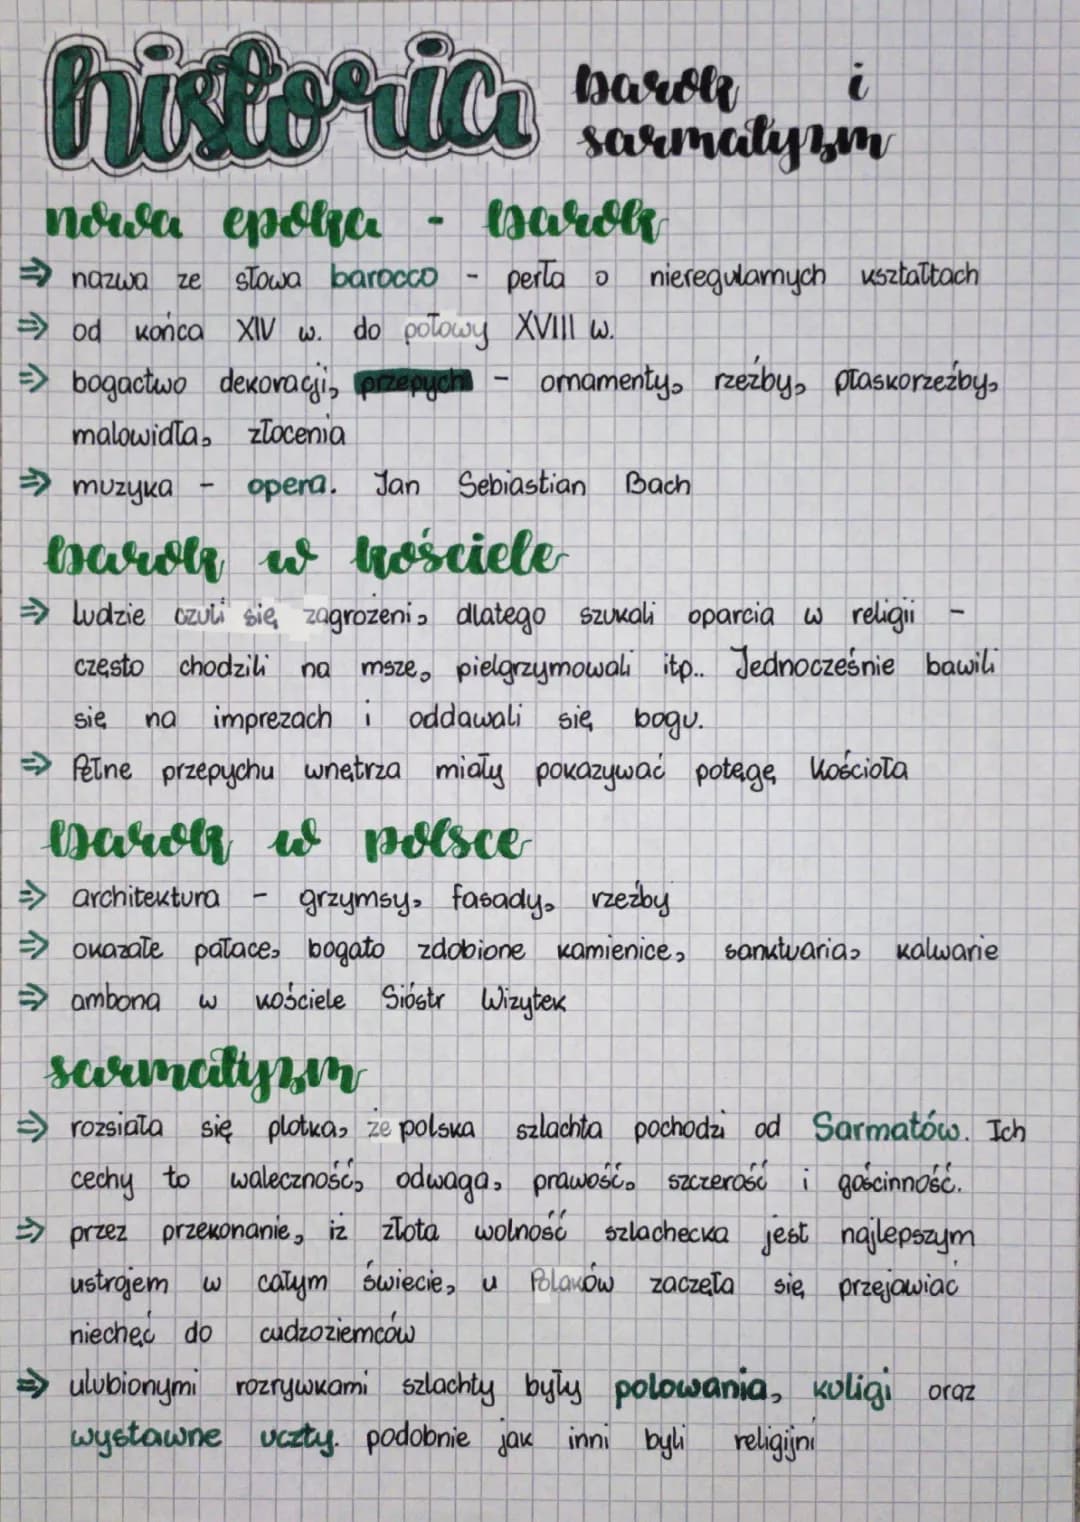 historia barok i
sarmatyzm
nowa epoka - barok
⇒ nazwa ze słowa barocco - perła o nieregularnych kształtach
⇒ od końca XIV w. do połowy XVIII w.
⇒ bogactwo dekoracji, przepych - ornamenty, rzeźby, płaskorzeźby,
malowidła, złocenia
⇒ muzyka - opera. Jan Sebiastian Bach
barok w kościele
⇒ ludzie czuli się zagrożeni, dlatego szukali oparcia w religii -
często chodzili na msze, pielgrzymowali itp.. Jednocześnie bawili
się na imprezach i oddawali się bogu.
⇒ Pełne przepychu wnętrza miały pokazywać potęgę Kościoła
barok w polsce
⇒ architektura - grzymsy, fasady, rzeźby
⇒ okazałe pałace, bogato zdobione kamienice, sanktuaria, kalwarie
⇒ ambona w kościele Sióstr Wizytek
sarmatyzm
⇒ rozsiała się plotka, że polska szlachta pochodzi od Sarmatów. Ich
cechy to waleczność, odwaga, prawość, szczerość i gościnność.
⇒ przez przekonanie, iż złota wolność szlachecka jest najlepszym
ustrojem w całym świecie, u Polaków zaczęła się przejawiać
niechęć do cudzoziemców
⇒ ulubionymi rozrywkami szlachty były polowania, kuligi oraz
wystawne uczty. podobnie jak inni byli religijni